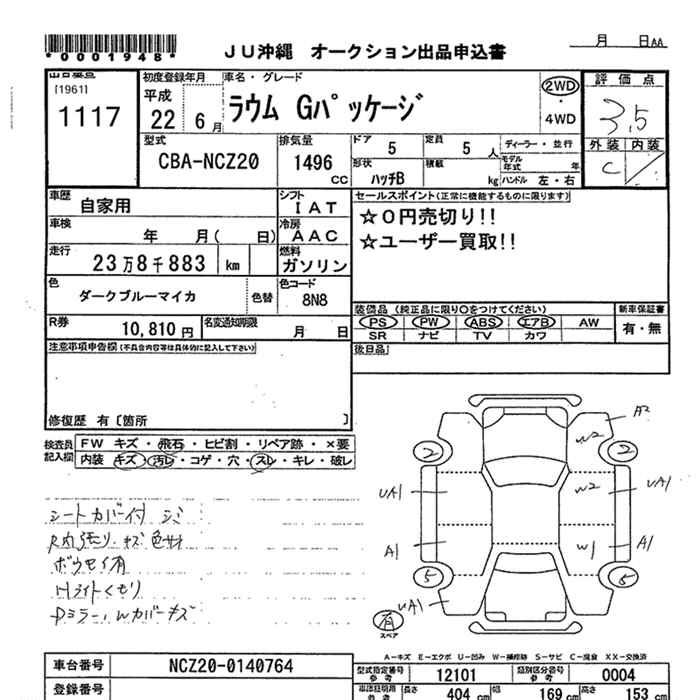 *0001948*
JU沖縄 オークション出品申込書
月 日AA
[1961]
1117
初度登録年月
平成
22 6月
車名・グレード
ラウム Gパッケージ
2WD
・
4WD
評価点
3.5
外装 内装
C
型式
CBA-NCZ20
排気量
1496
CC
ドア
5
定員
5人
形状
ハッチB
積載
kg
ディーラー・並行
モデル年式 年
ハンドル 左・右
車歴
自家用
シフト
IAT
車検
年 月( 日)
冷房
AAC
走行
23万8千883 km
燃料
ガソリン
色
ダークブルーマイカ
色替
色コード
8N8
R券
10,810円
名変通知期限
月 日
セールスポイント(正常に機能するものに限ります)
☆0円売切り!!
☆ユーザー買取!!
装備品(純正品に限り○をつけてください)
新車保証書
PS PW ABS エアB AW
SR ナビ TV カワ
有・無
後日品
注意事項申告欄(不具合内容等は具体的に記入して下さい)
修復歴 有〔箇所 〕
検査員記入欄
FW キズ・飛石・ヒビ割・リペア跡・×要
内装 キズ・汚レ・コゲ・穴・スレ・キレ・破レ
シートカバー付 シミ
R内張り・キズ色サメ
ボウセイ有
Hライトくもり
Dミラー.Wカバーキズ
A2
W2
2
2
UA1
W2
UA1
A1
W1
A1
5
5
UA1
有
スペア
A-キズ E-エクボ U-凹み W-補修跡 S-サビ C-腐食 XX-交換済
車台番号
NCZ20-0140764
登録番号
型式指定番号
参考
12101
類別区分番号
参考
0004
車検証明書
参考
長さ
404 cm
幅
169 cm
高さ
153 cm